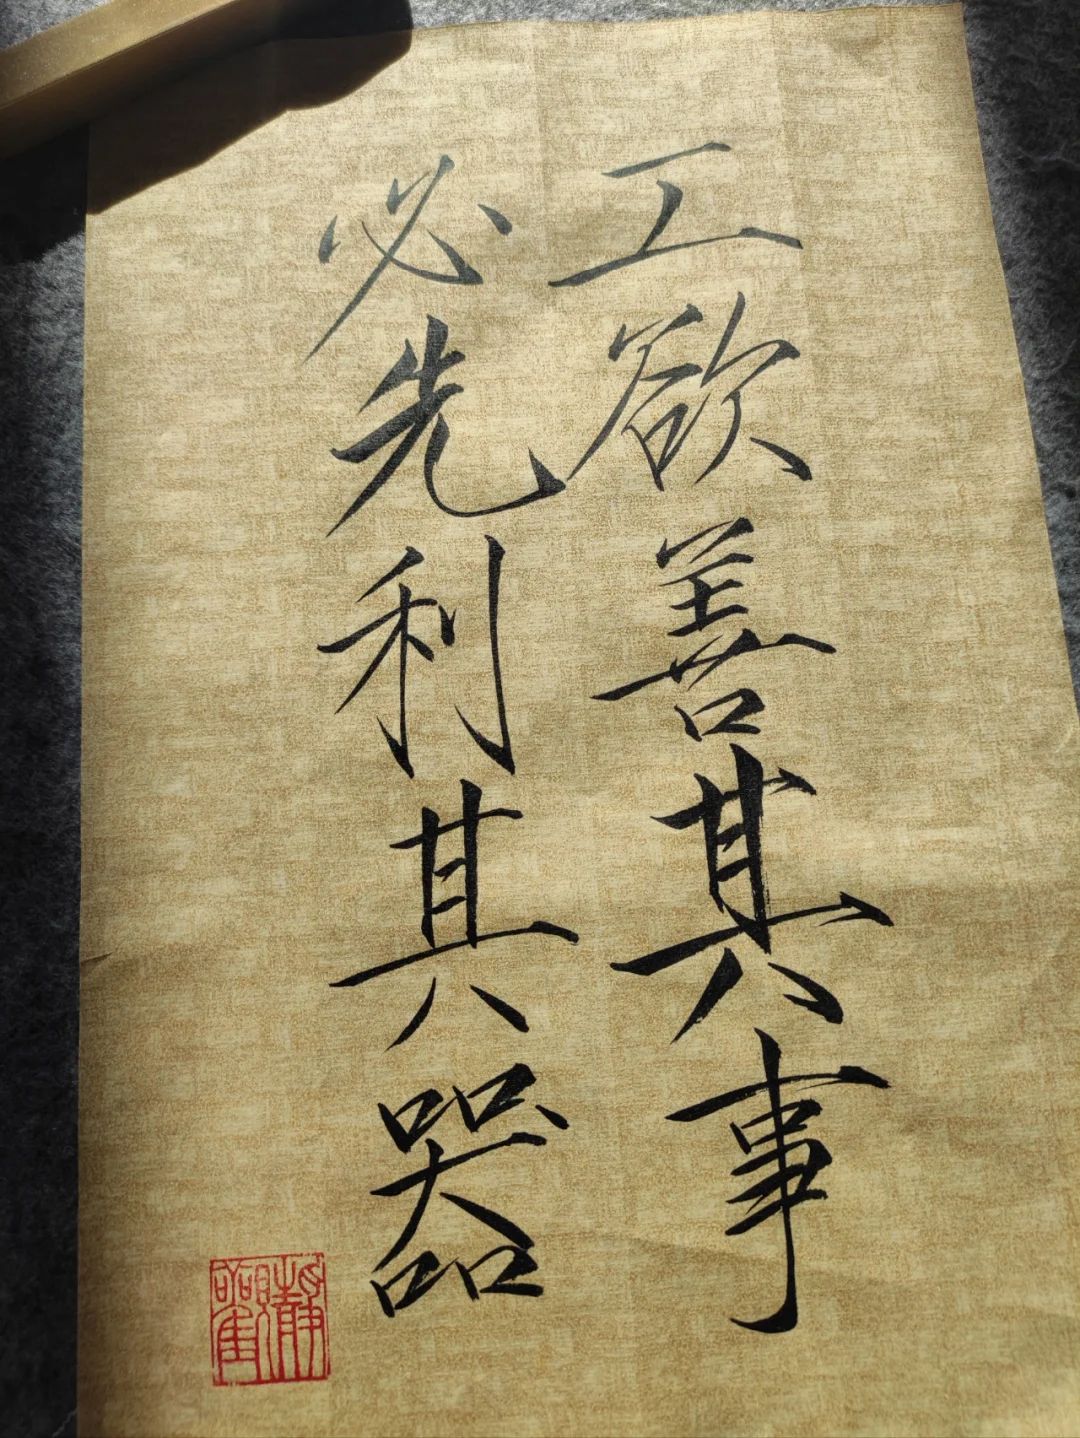 工欲善其事
必先利其器
静观